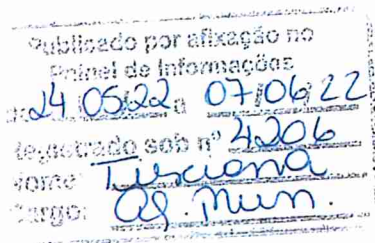 Publicado por afixação no
Painel de Informações
de 24 05 22 a 07/06/22
Registrado sob nº 4206
Nome: Lusciana
Cargo: Ag. Mun.